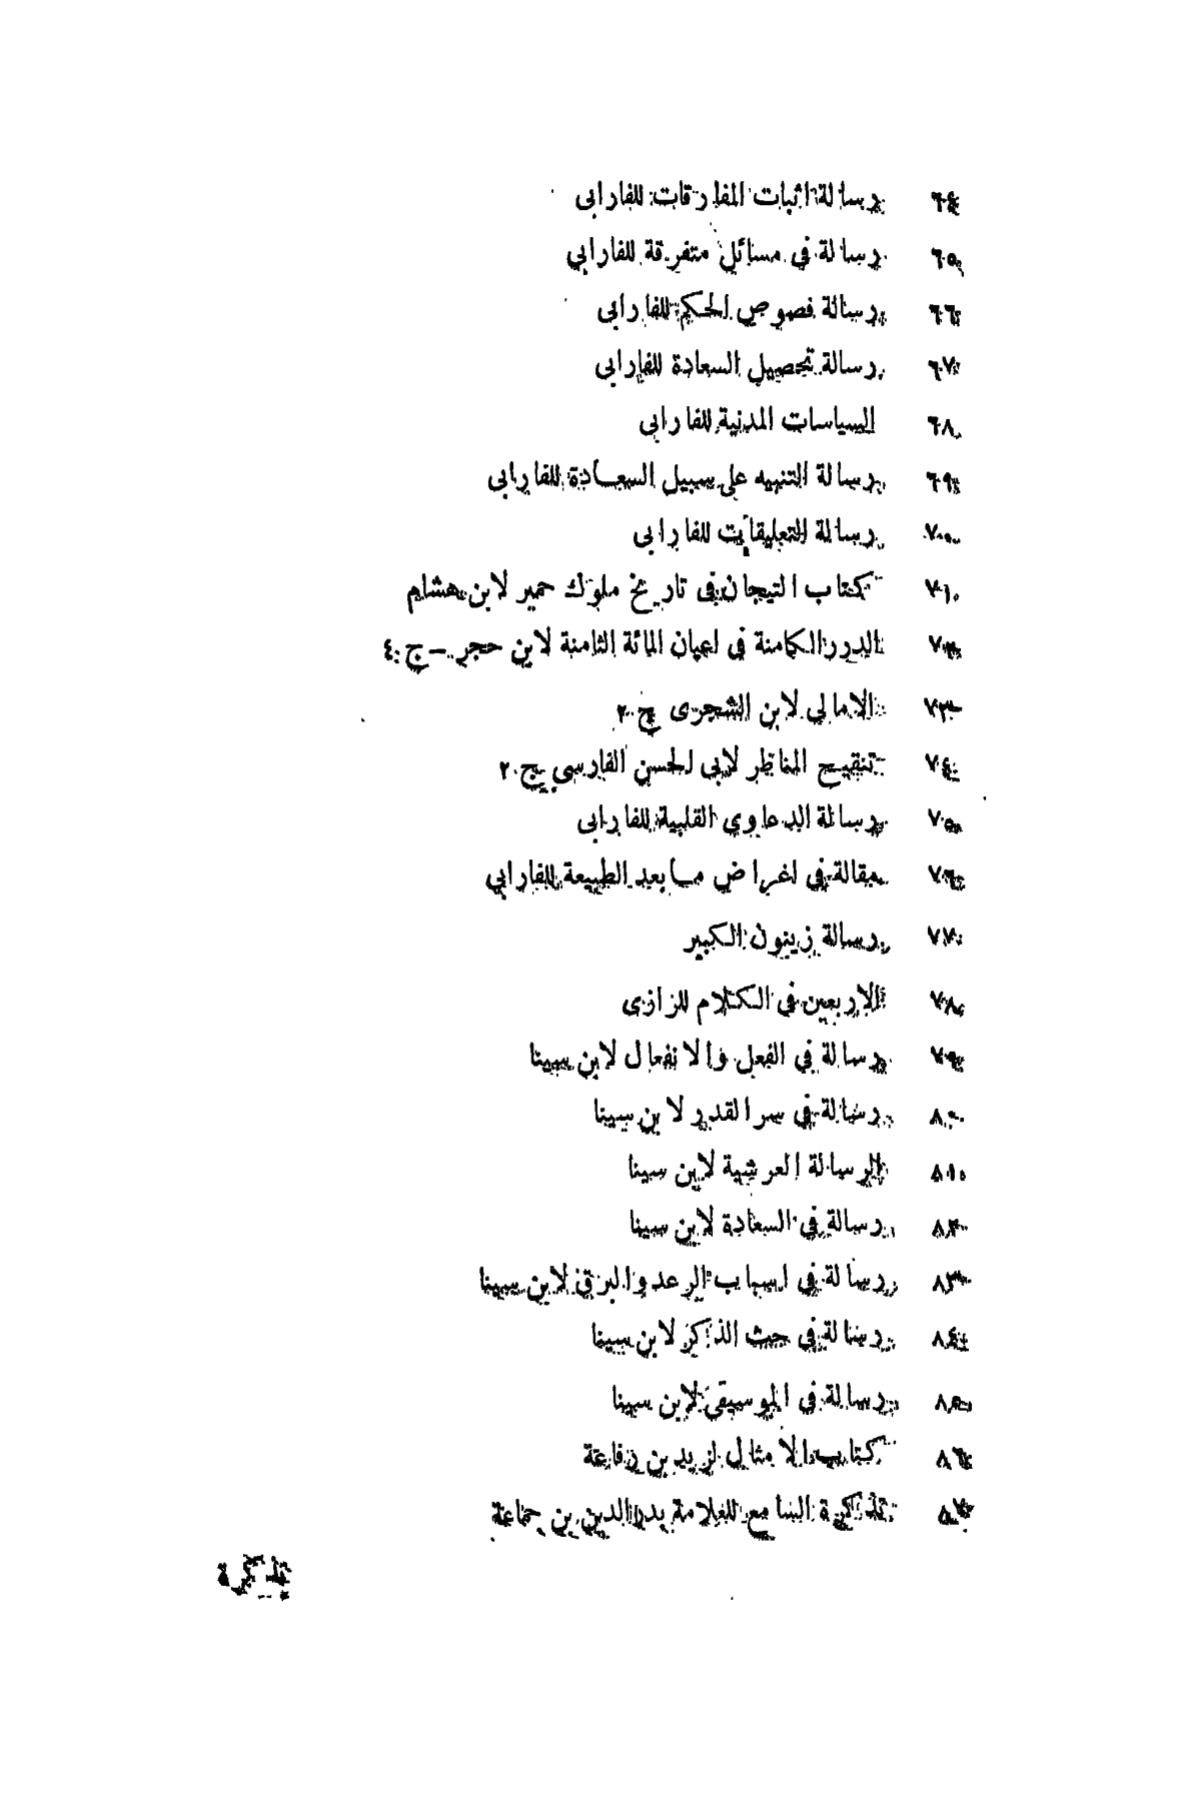 ٦٤ رسالة اثبات المفارقات للفارابى
٦٥ رسالة فى مسائل متفرقة للفارابي
٦٦ رسالة فصوص الحكم للفارابى
٦٧ رسالة تحصيل السعادة للفارابى
٦٨ السياسات المدنية للفارابى
٦٩ رسالة التنبيه على سبيل السعادة للفارابى
٧٠ رسالة التعليقات للفارابى
٧١ كتاب التيجان فى تاريخ ملوك حمير لابن هشام
٧٢ الدرر الكامنة فى اعيان المائة الثامنة لابن حجر – ج ٤
٧٣ الامالي لابن الشجرى ج ٢
٧٤ تنقيح المناظر لابى الحسن الفارسي ج ٢
٧٥ رسالة الدعاوي القلبية للفارابى
٧٦ مقالة فى اغراض ما بعد الطبيعة للفارابي
٧٧ رسالة زينون الكبير
٧٨ الاربعين فى الكلام للرازى
٧٩ رسالة فى الفعل والانفعال لابن سينا
٨٠ رسالة فى سر القدر لابن سينا
٨١ الرسالة العرشية لابن سينا
٨٢ رسالة فى السعادة لابن سينا
٨٣ رسالة فى اسباب الرعد والبرق لابن سينا
٨٤ رسالة فى حث الذكر لابن سينا
٨٥ رسالة فى الموسيقى لابن سينا
٨٦ كتاب الامثال لزيد بن رفاعة
٨٧ تذكرة السامع للعلامة بدرالدين بن جماعة
تذكرة